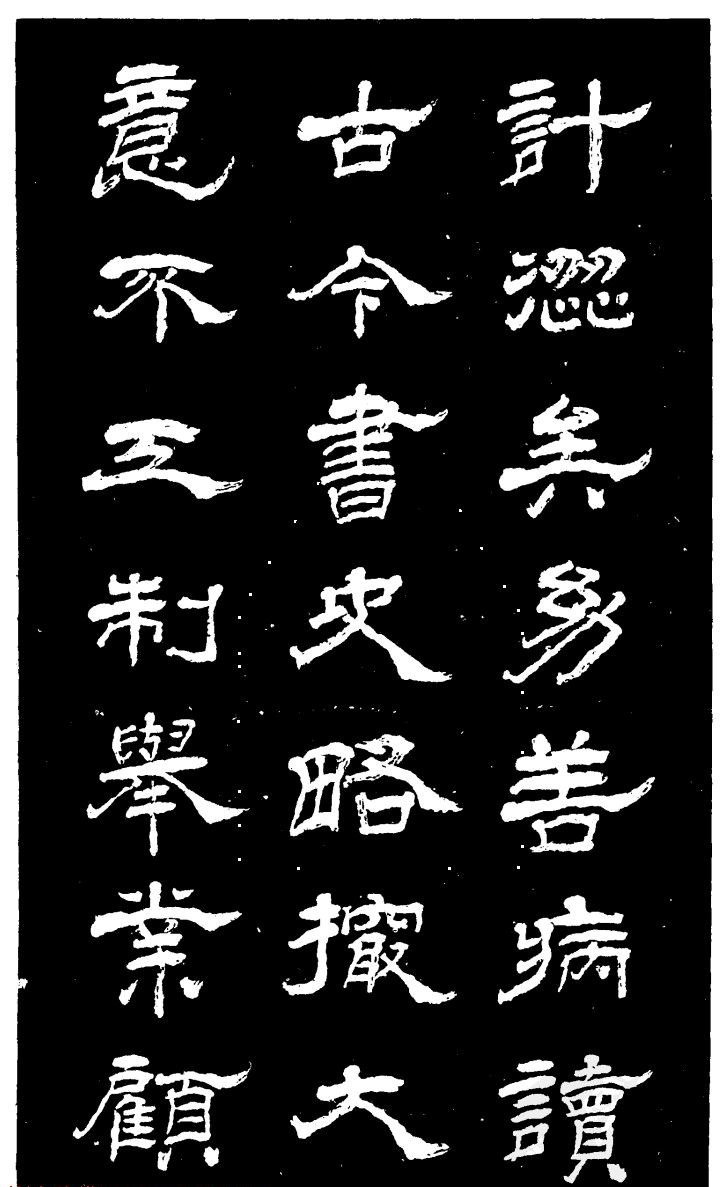 計澀矣幼善病讀
古今書史略撮大
意不工制舉業顧